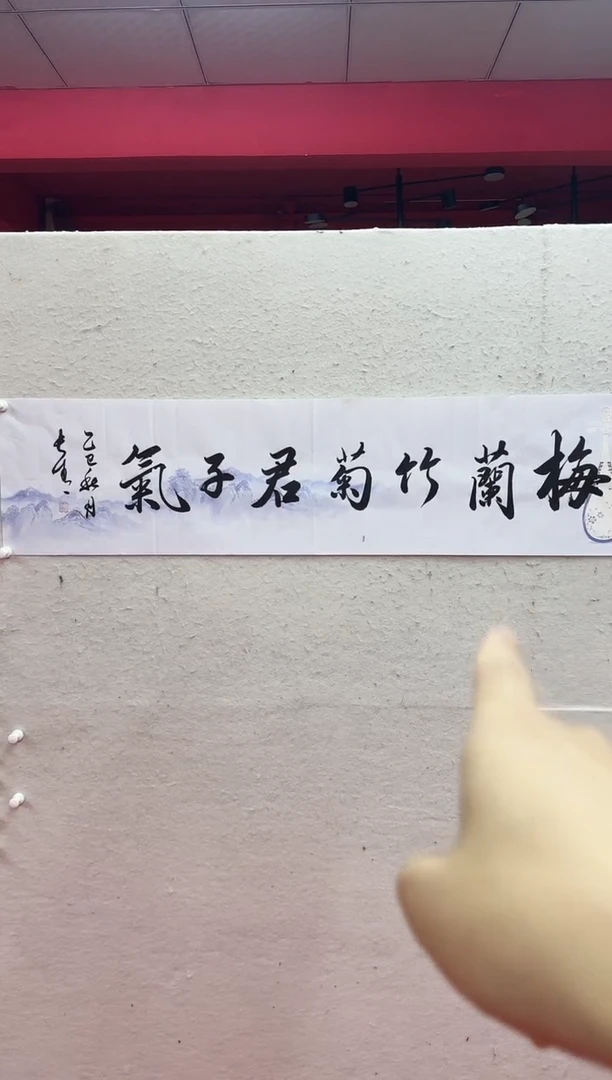 梅蘭竹菊君子氣
乙巳秋月